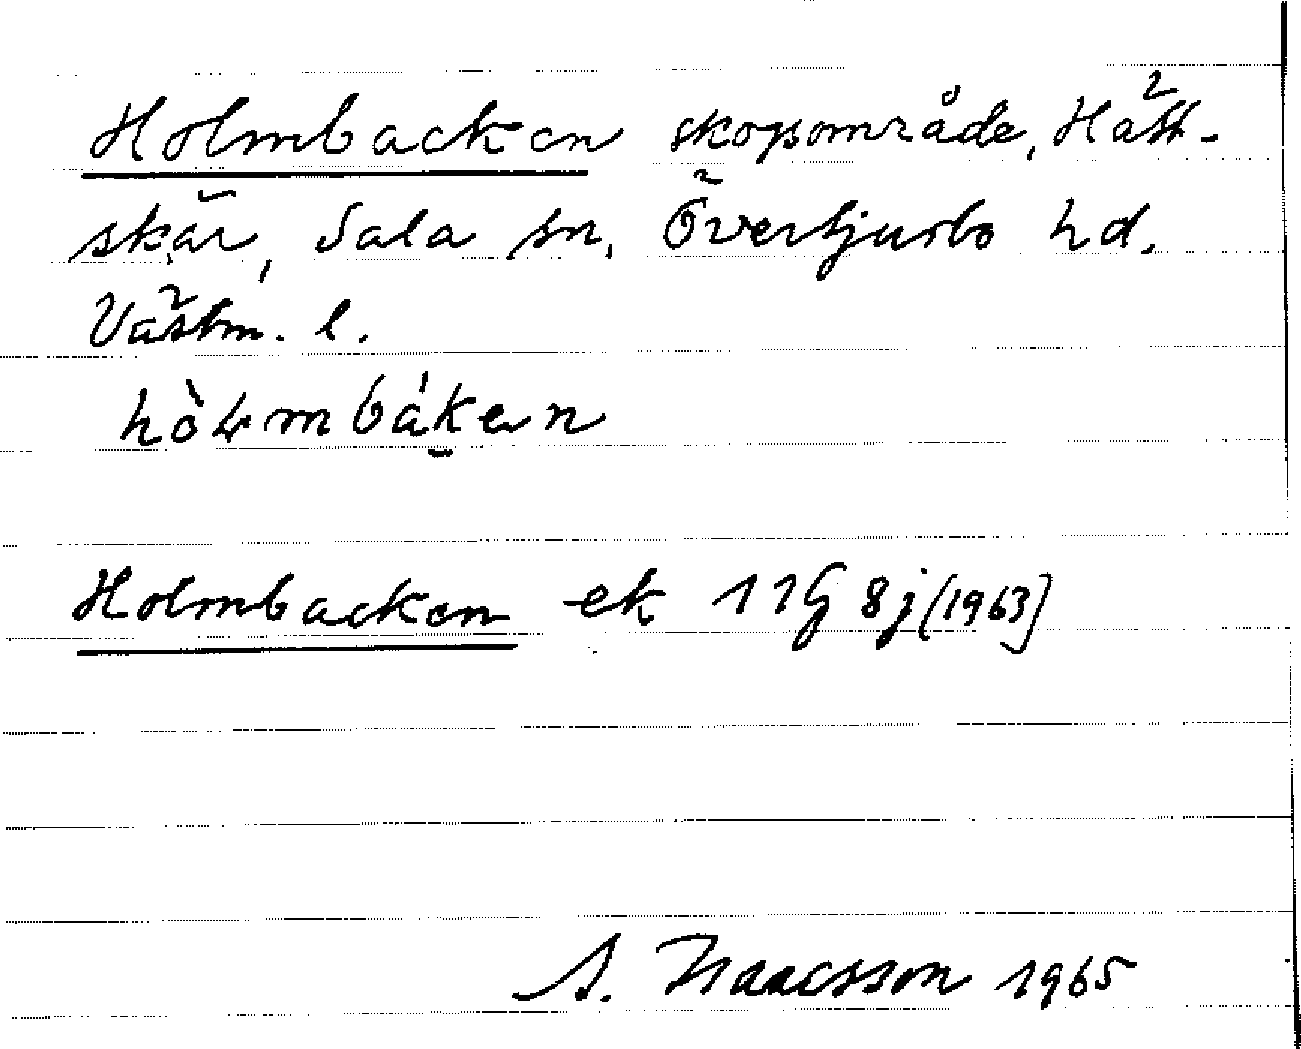 Holmbacken skogsområde, Hätt-
skär, Sala sn, Övertjurbo hd.
Västm. l.
Holmbacken ek 11G 8j (1963)
A. Isaacsson 1965